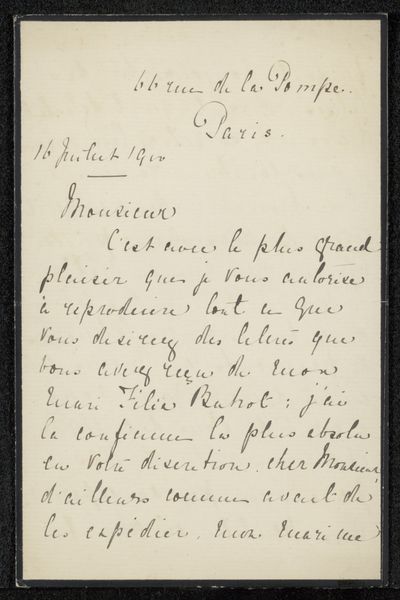 66 rue de la Pompe.
Paris.
16 Juillet 1900
Monsieur
C'est avec le plus grand
plaisir que je vous autorise
à reproduire tout ce que
vous desirez des lettres que
vous avez reçu de mon
mari Félix Buhot ; j'ai
la confiance la plus absolu
en votre discretion, cher Monsieur,
d'ailleurs comme avant de
les expédier, mon mari me